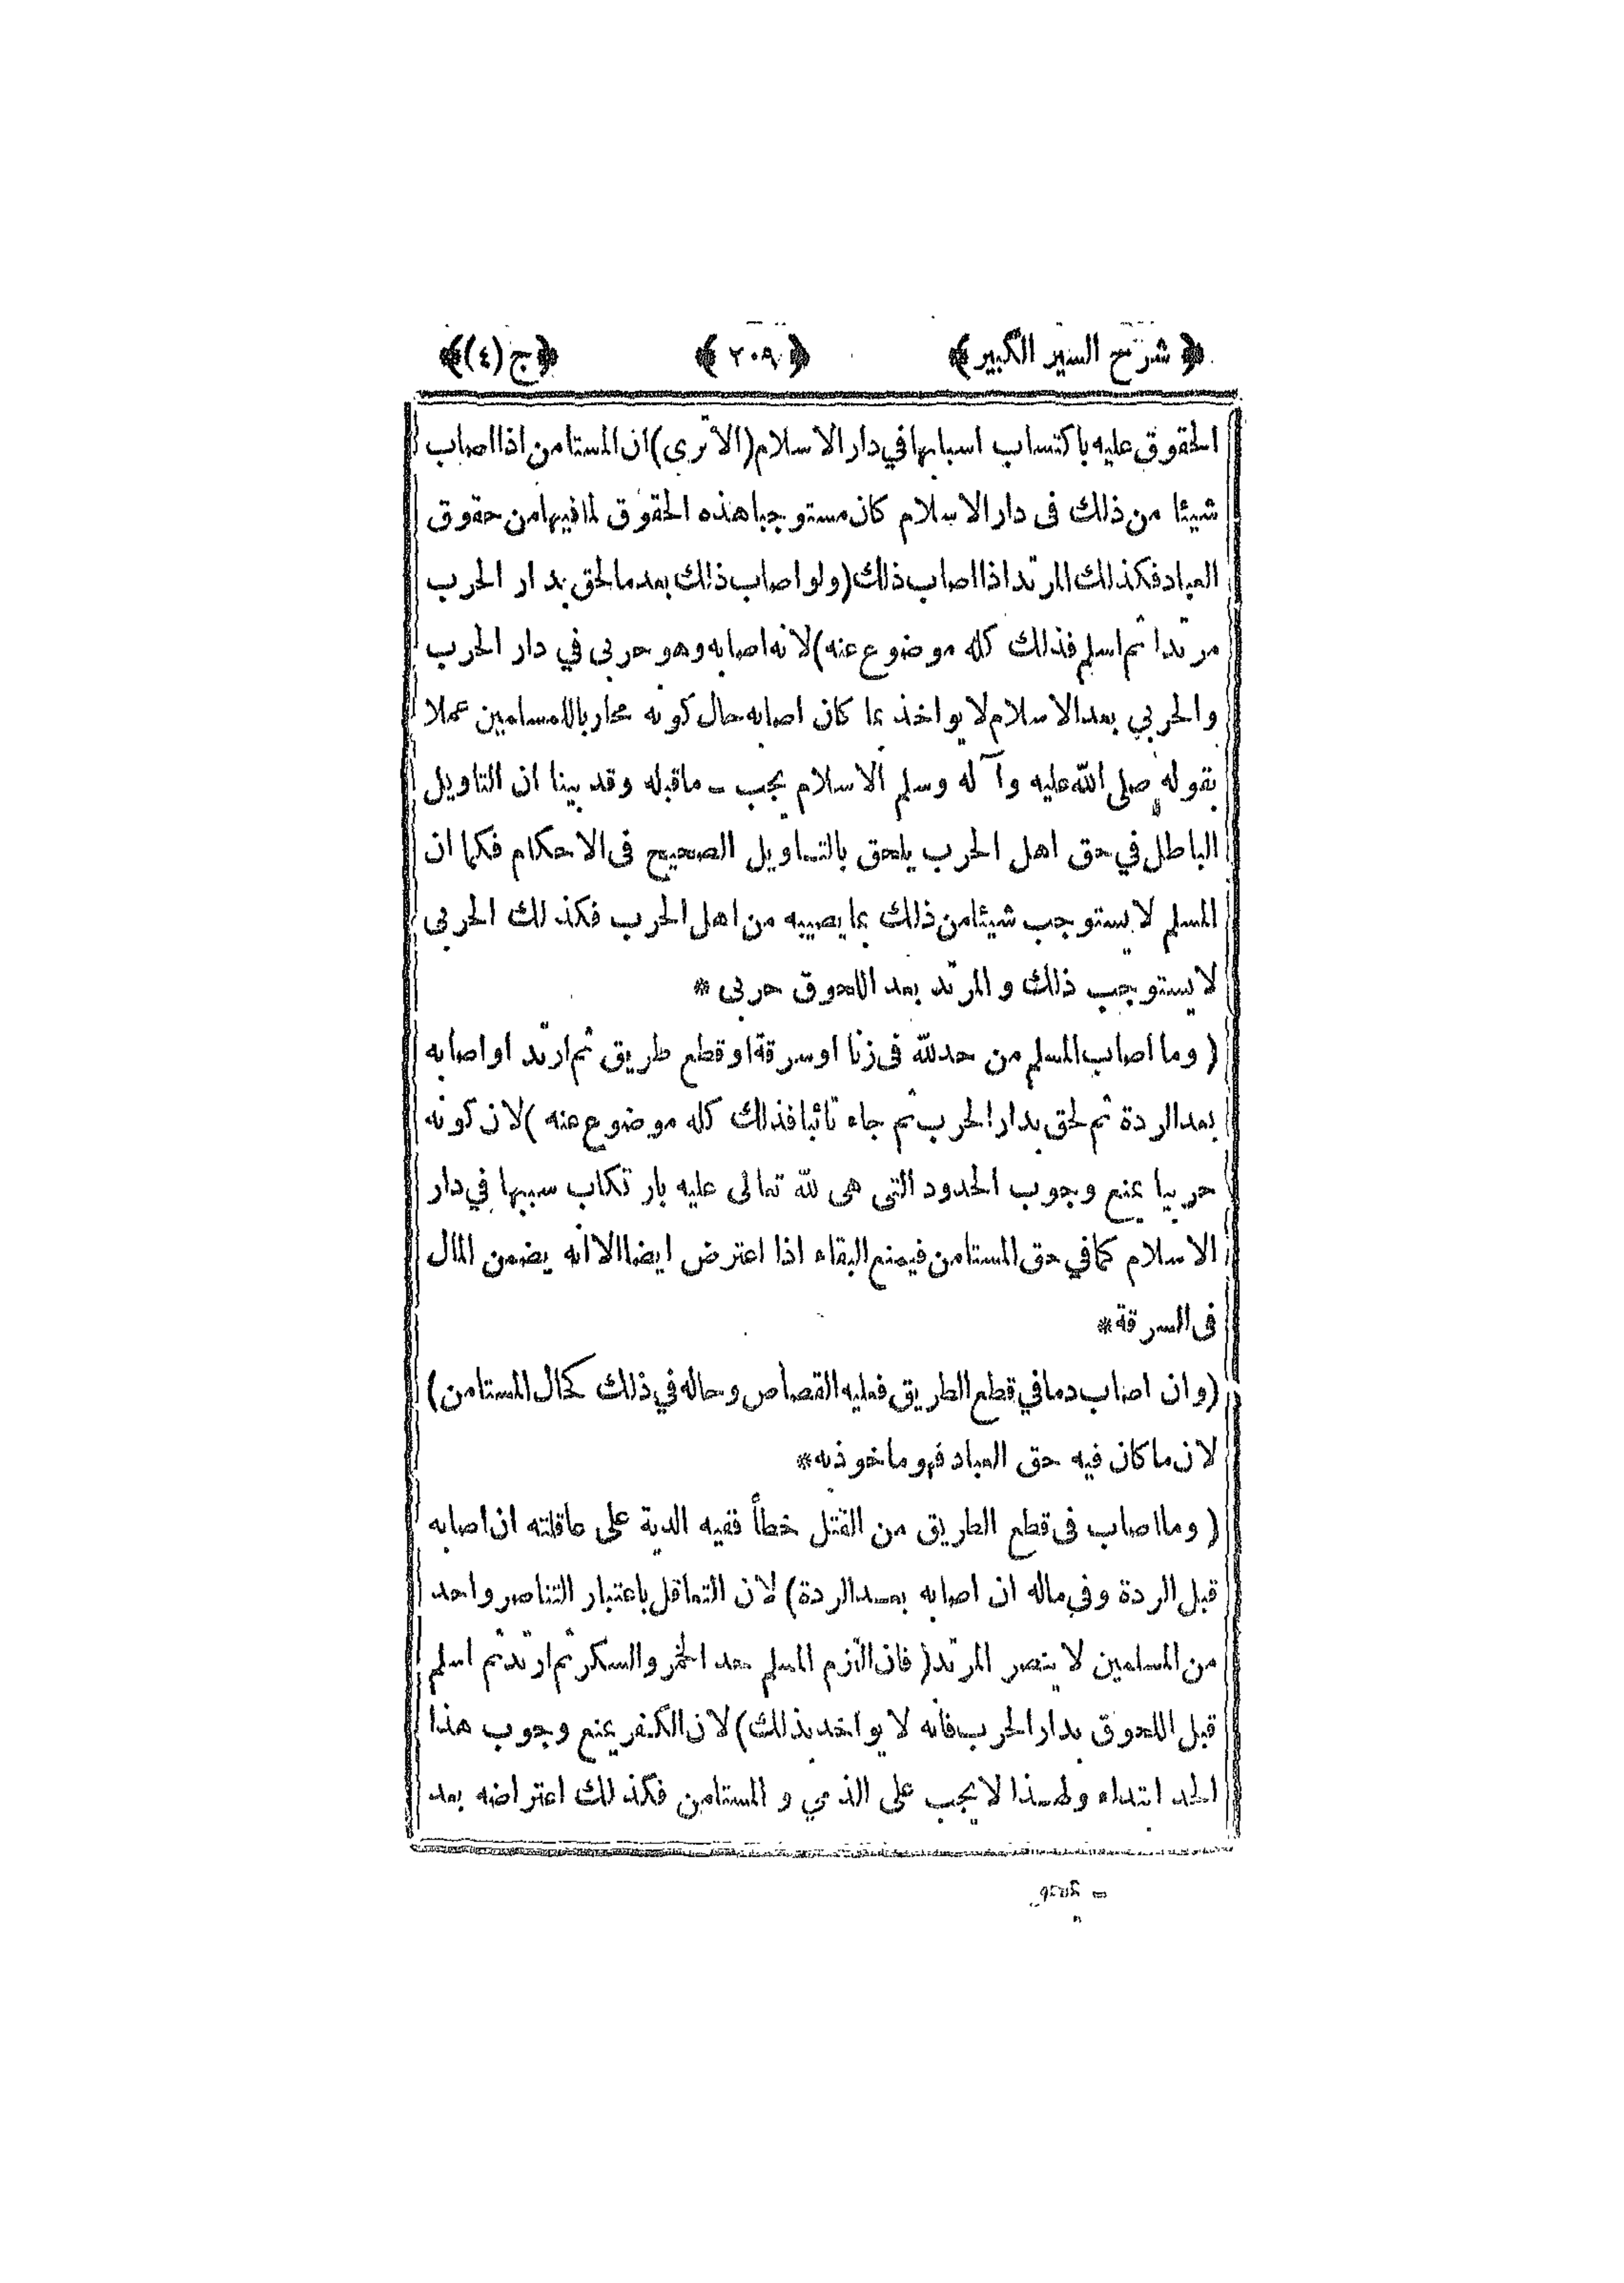 ﴿ شرح السير الكبير ﴾ ﴿ ٢٠٩ ﴾ ﴿ ج (٤) ﴾
الحقوق عليه باكتساب اسبابها في دار الاسلام (الا ترى) ان المستامن اذا اصاب
شيئا من ذلك فى دار الاسلام كان مستوجبا هذه الحقوق لما فيها من حقوق
العباد فكذلك المرتد اذا اصاب ذلك (ولو اصاب ذلك بعد ما لحق بدار الحرب
مرتدا ثم اسلم فذلك كله موضوع عنه) لانه اصابه وهو حربى في دار الحرب
والحربي بعد الاسلام لا يواخذ بما كان اصابه حال كونه محاربا للمسلمين عملا
بقوله صلى الله عليه وآله وسلم الاسلام يجب ـ ما قبله وقد بينا ان التاويل
الباطل في حق اهل الحرب يلحق بالتاويل الصحيح فى الاحكام فكما ان
المسلم لا يستوجب شيئا من ذلك بما يصيبه من اهل الحرب فكذلك الحربى
لا يستوجب ذلك والمرتد بعد اللحوق حربى *
( وما اصاب المسلم من حد لله فى زنا او سرقة او قطع طريق ثم ارتد او اصابه
بعد الردة ثم لحق بدار الحرب ثم جاء تائبا فذلك كله موضوع عنه ) لان كونه
حربيا يمنع وجوب الحدود التى هى لله تعالى عليه بارتكاب سببها في دار
الاسلام كما في حق المستامن فيمنع البقاء اذا اعترض ايضا الا انه يضمن المال
فى السرقة *
(وان اصاب دما في قطع الطريق فعليه القصاص وحاله في ذلك كحال المستامن)
لان ما كان فيه حق العباد فهو ماخوذ به *
( وما اصاب فى قطع الطريق من القتل خطأ ففيه الدية على عاقلته ان اصابه
قبل الردة وفي ماله ان اصابه بعد الردة) لان التعاقل باعتبار التناصر واحد
من المسلمين لا ينصر المرتد ( فان التزم المسلم حد الخمر والسكر ثم ارتد ثم اسلم
قبل اللحوق بدار الحرب فانه لا يواخذ بذلك) لان الكفر يمنع وجوب هذا
الحد ابتداء ولهذا لا يجب على الذمي والمستامن فكذلك اعتراضه بعد